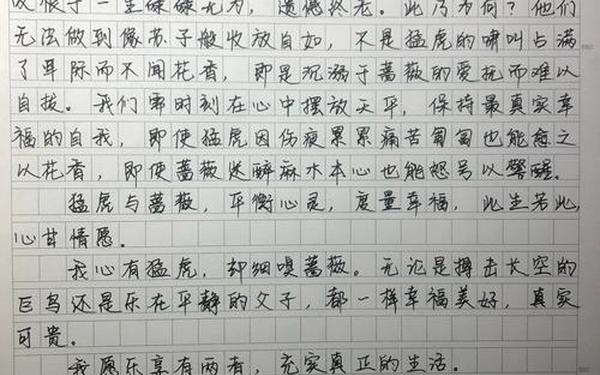 恨于一生碌碌无为，遗憾终老。此乃为何？他们
无法做到像苏子般收放自如，不是猛虎的啸叫占满
了耳际而不闻花香，即是沉溺于蔷薇的爱抚而难以
自拔。我们需时刻在心中摆放天平，保持最真实幸
福的自我，即使猛虎因伤疲累累痛苦匍匐也能愈之
以花香，即便蔷薇迷醉麻木本心也能怒号以警醒。
猛虎与蔷薇，平衡心灵，度量幸福，此生若此，
心甘情愿。
我心有猛虎，却细嗅蔷薇。无论是搏击长空的
巨鸟还是乐在平静的父子，都一样幸福美好，真实
可贵。
我愿乐享有两者，充实真正的生活。